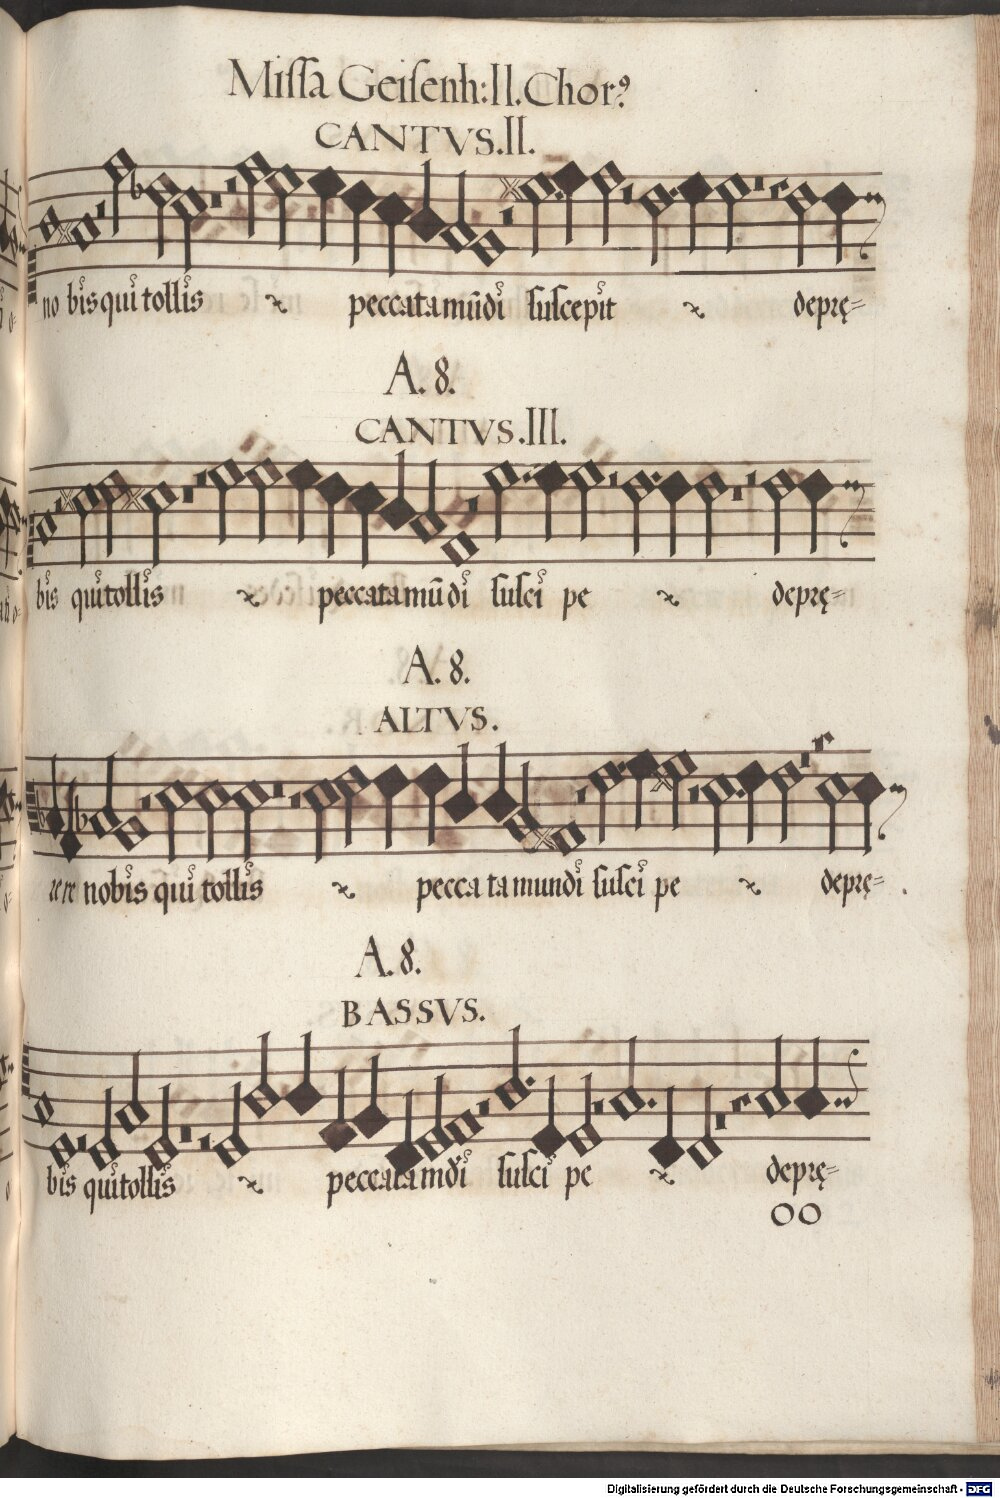 Missa Geisenh: II. Chor9
CANTVS. II.
no bis qui tollis peccata mūdi suscepit deprę=
A. 8.
CANTVS. III.
bis qui tollis peccata mūdi susci pe deprę=
A. 8.
ALTVS.
re re nobis qui tollis pecca ta mundi susci pe deprę=
A. 8.
BASSVS.
bis qui tollis peccata mdi susci pe deprę=
OO
Digitalisierung gefördert durch die Deutsche Forschungsgemeinschaft - DFG